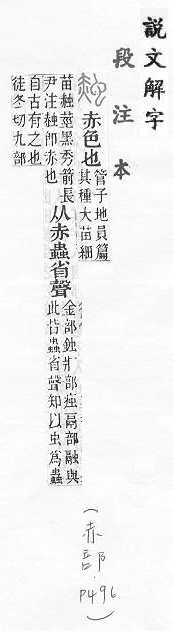 說文解字
段注本
赤色也
管子地員篇
其種大苗細
苗赨莖黑秀箭長
尹注赨卽赤也
从赤蟲省聲
金部鉵疒部痋鬲部融與
此皆蟲省聲知以虫爲蟲
自古有之也
徒冬切九部
(赤部. P496.)